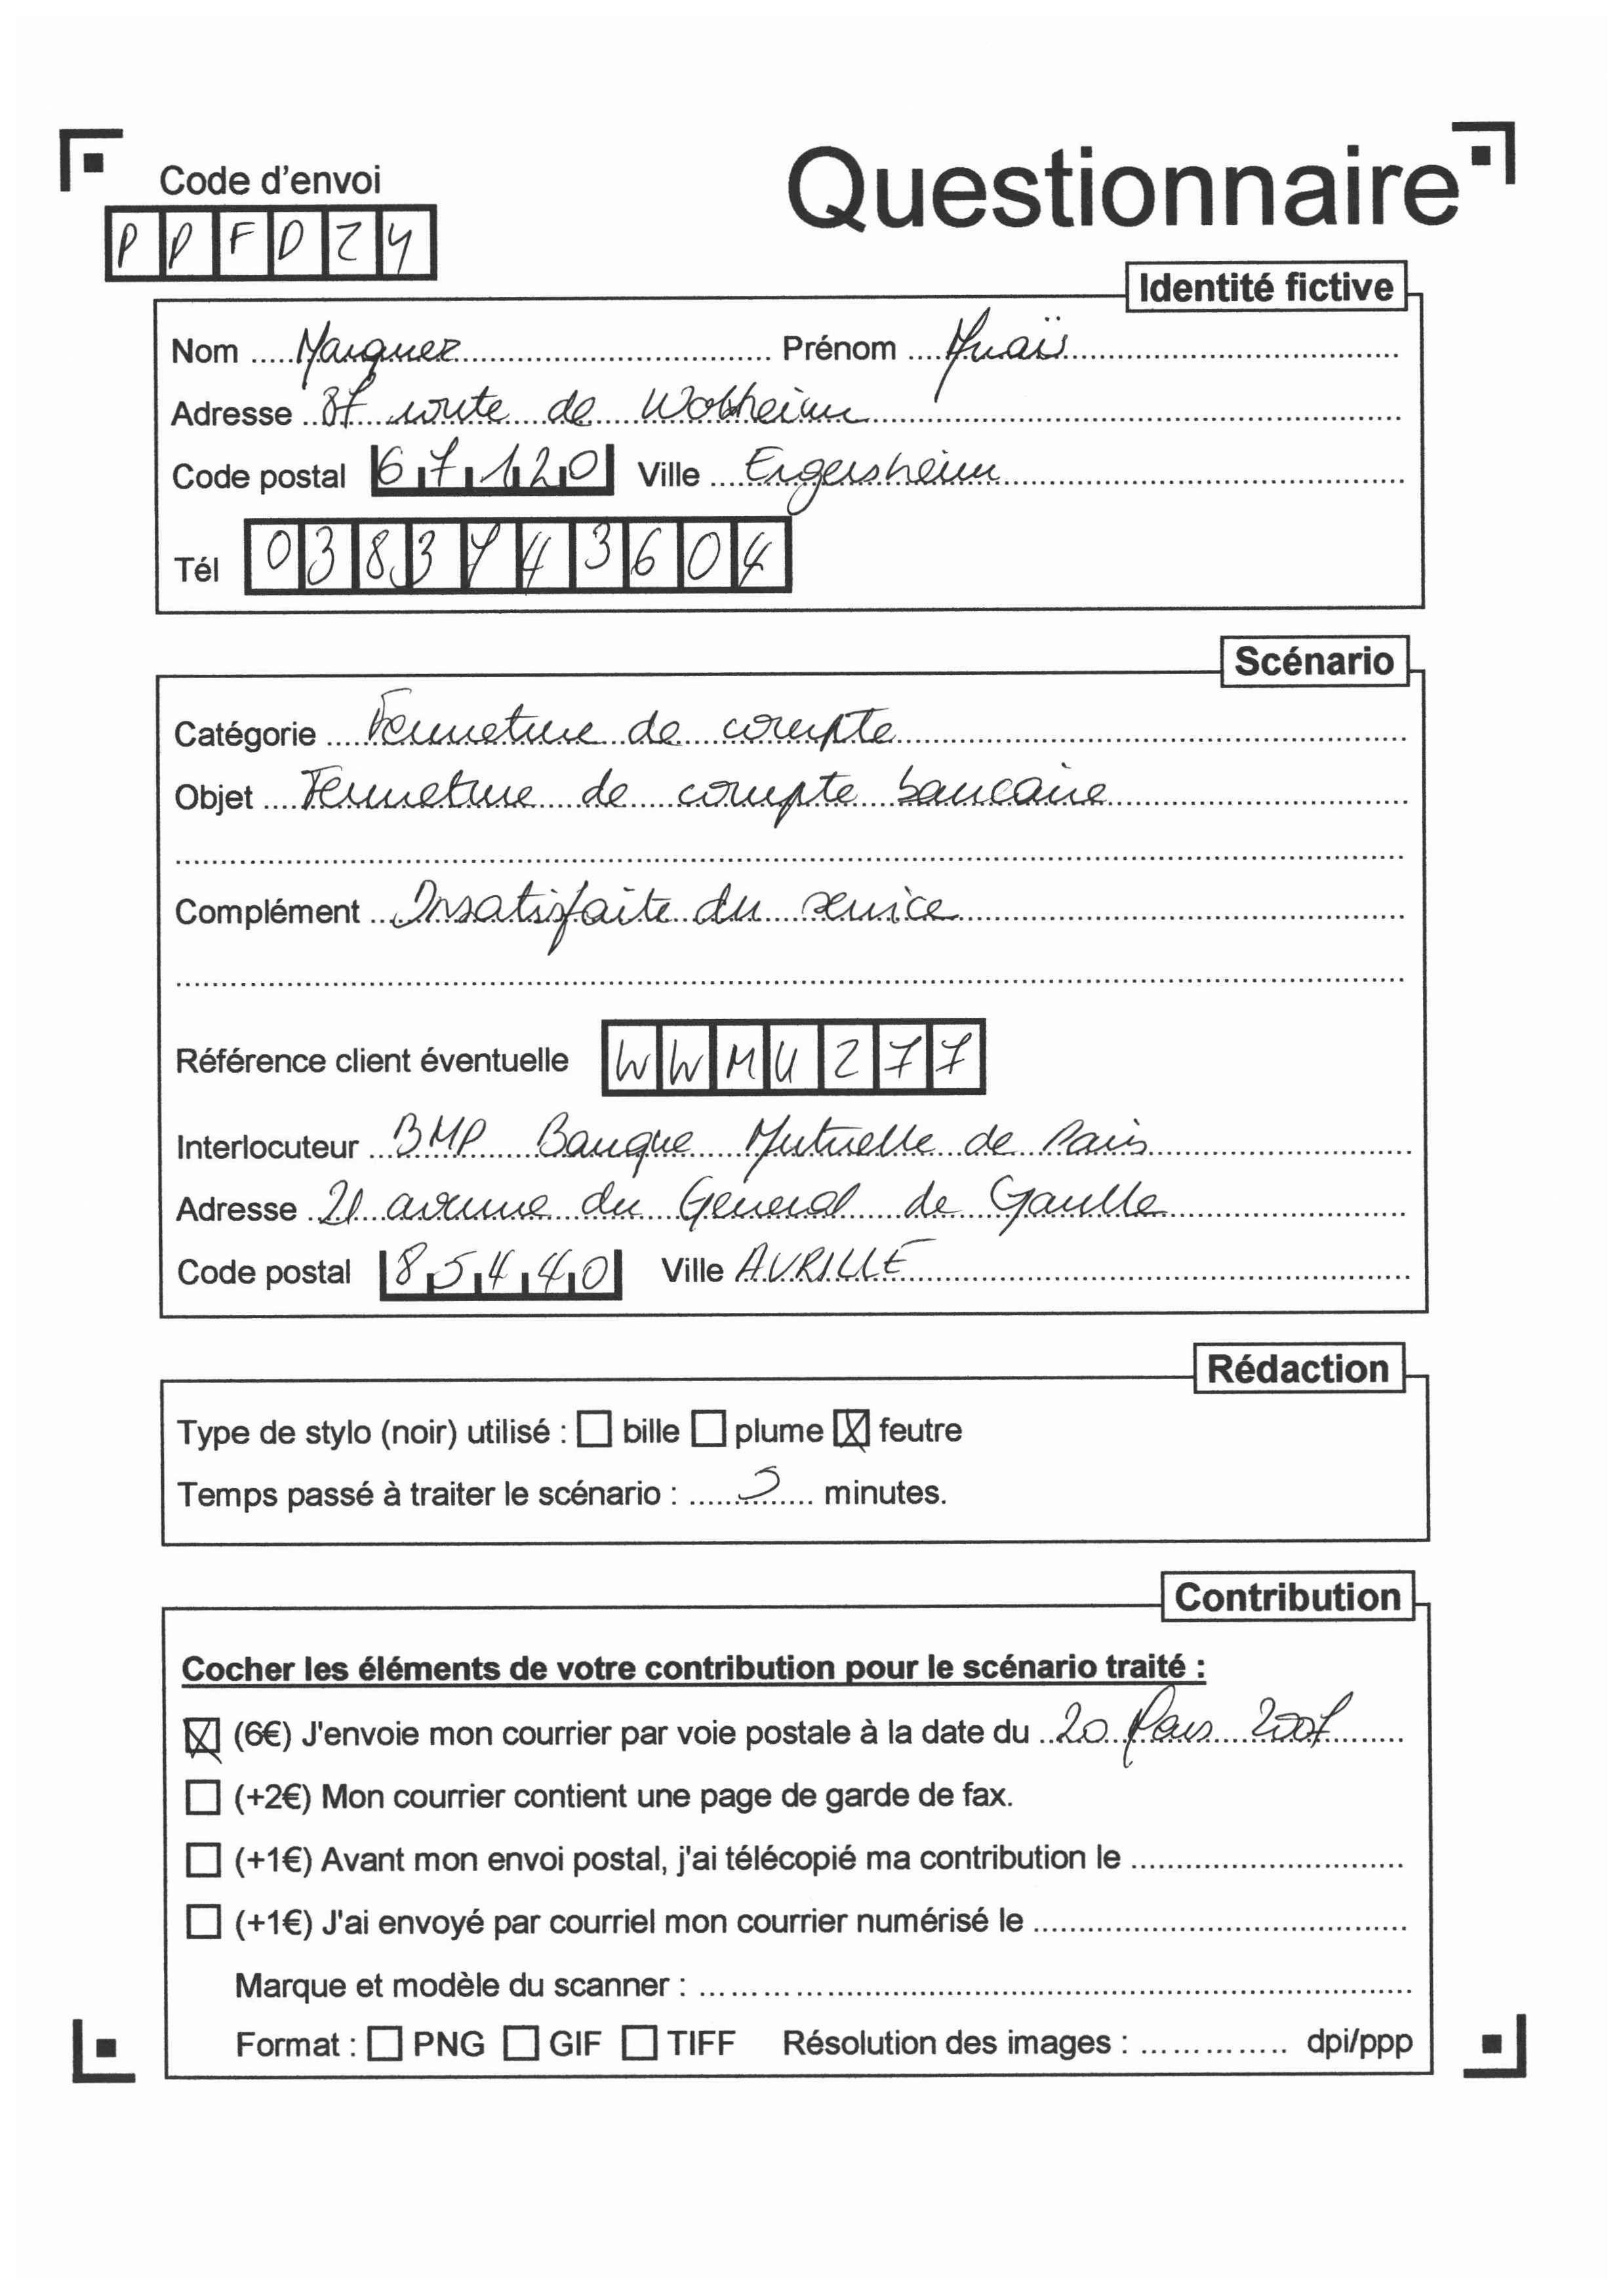 Questionnaire
Code d'envoi
PPFDZY
Identité fictive
Nom Marquez Prénom Anaïs
Adresse 37 route de Wolxheim
Code postal 67120 Ville Ergersheim
Tél 0383743604
Scénario
Catégorie Fermeture de compte
Objet Fermeture de compte bancaire
Complément Insatisfaite du service
Référence client éventuelle WWMU277
Interlocuteur BMP Banque Mutuelle de Paris
Adresse 21 avenue du Général de Gaulle
Code postal 85440 Ville AVRILLE
Rédaction
Type de stylo (noir) utilisé : bille plume feutre
Temps passé à traiter le scénario : 5 minutes.
Contribution
Cocher les éléments de votre contribution pour le scénario traité :
(6€) J'envoie mon courrier par voie postale à la date du 20 Mars 2007
(+2€) Mon courrier contient une page de garde de fax.
(+1€) Avant mon envoi postal, j'ai télécopié ma contribution le
(+1€) J'ai envoyé par courriel mon courrier numérisé le
Marque et modèle du scanner :
Format : PNG GIF TIFF Résolution des images : dpi/ppp